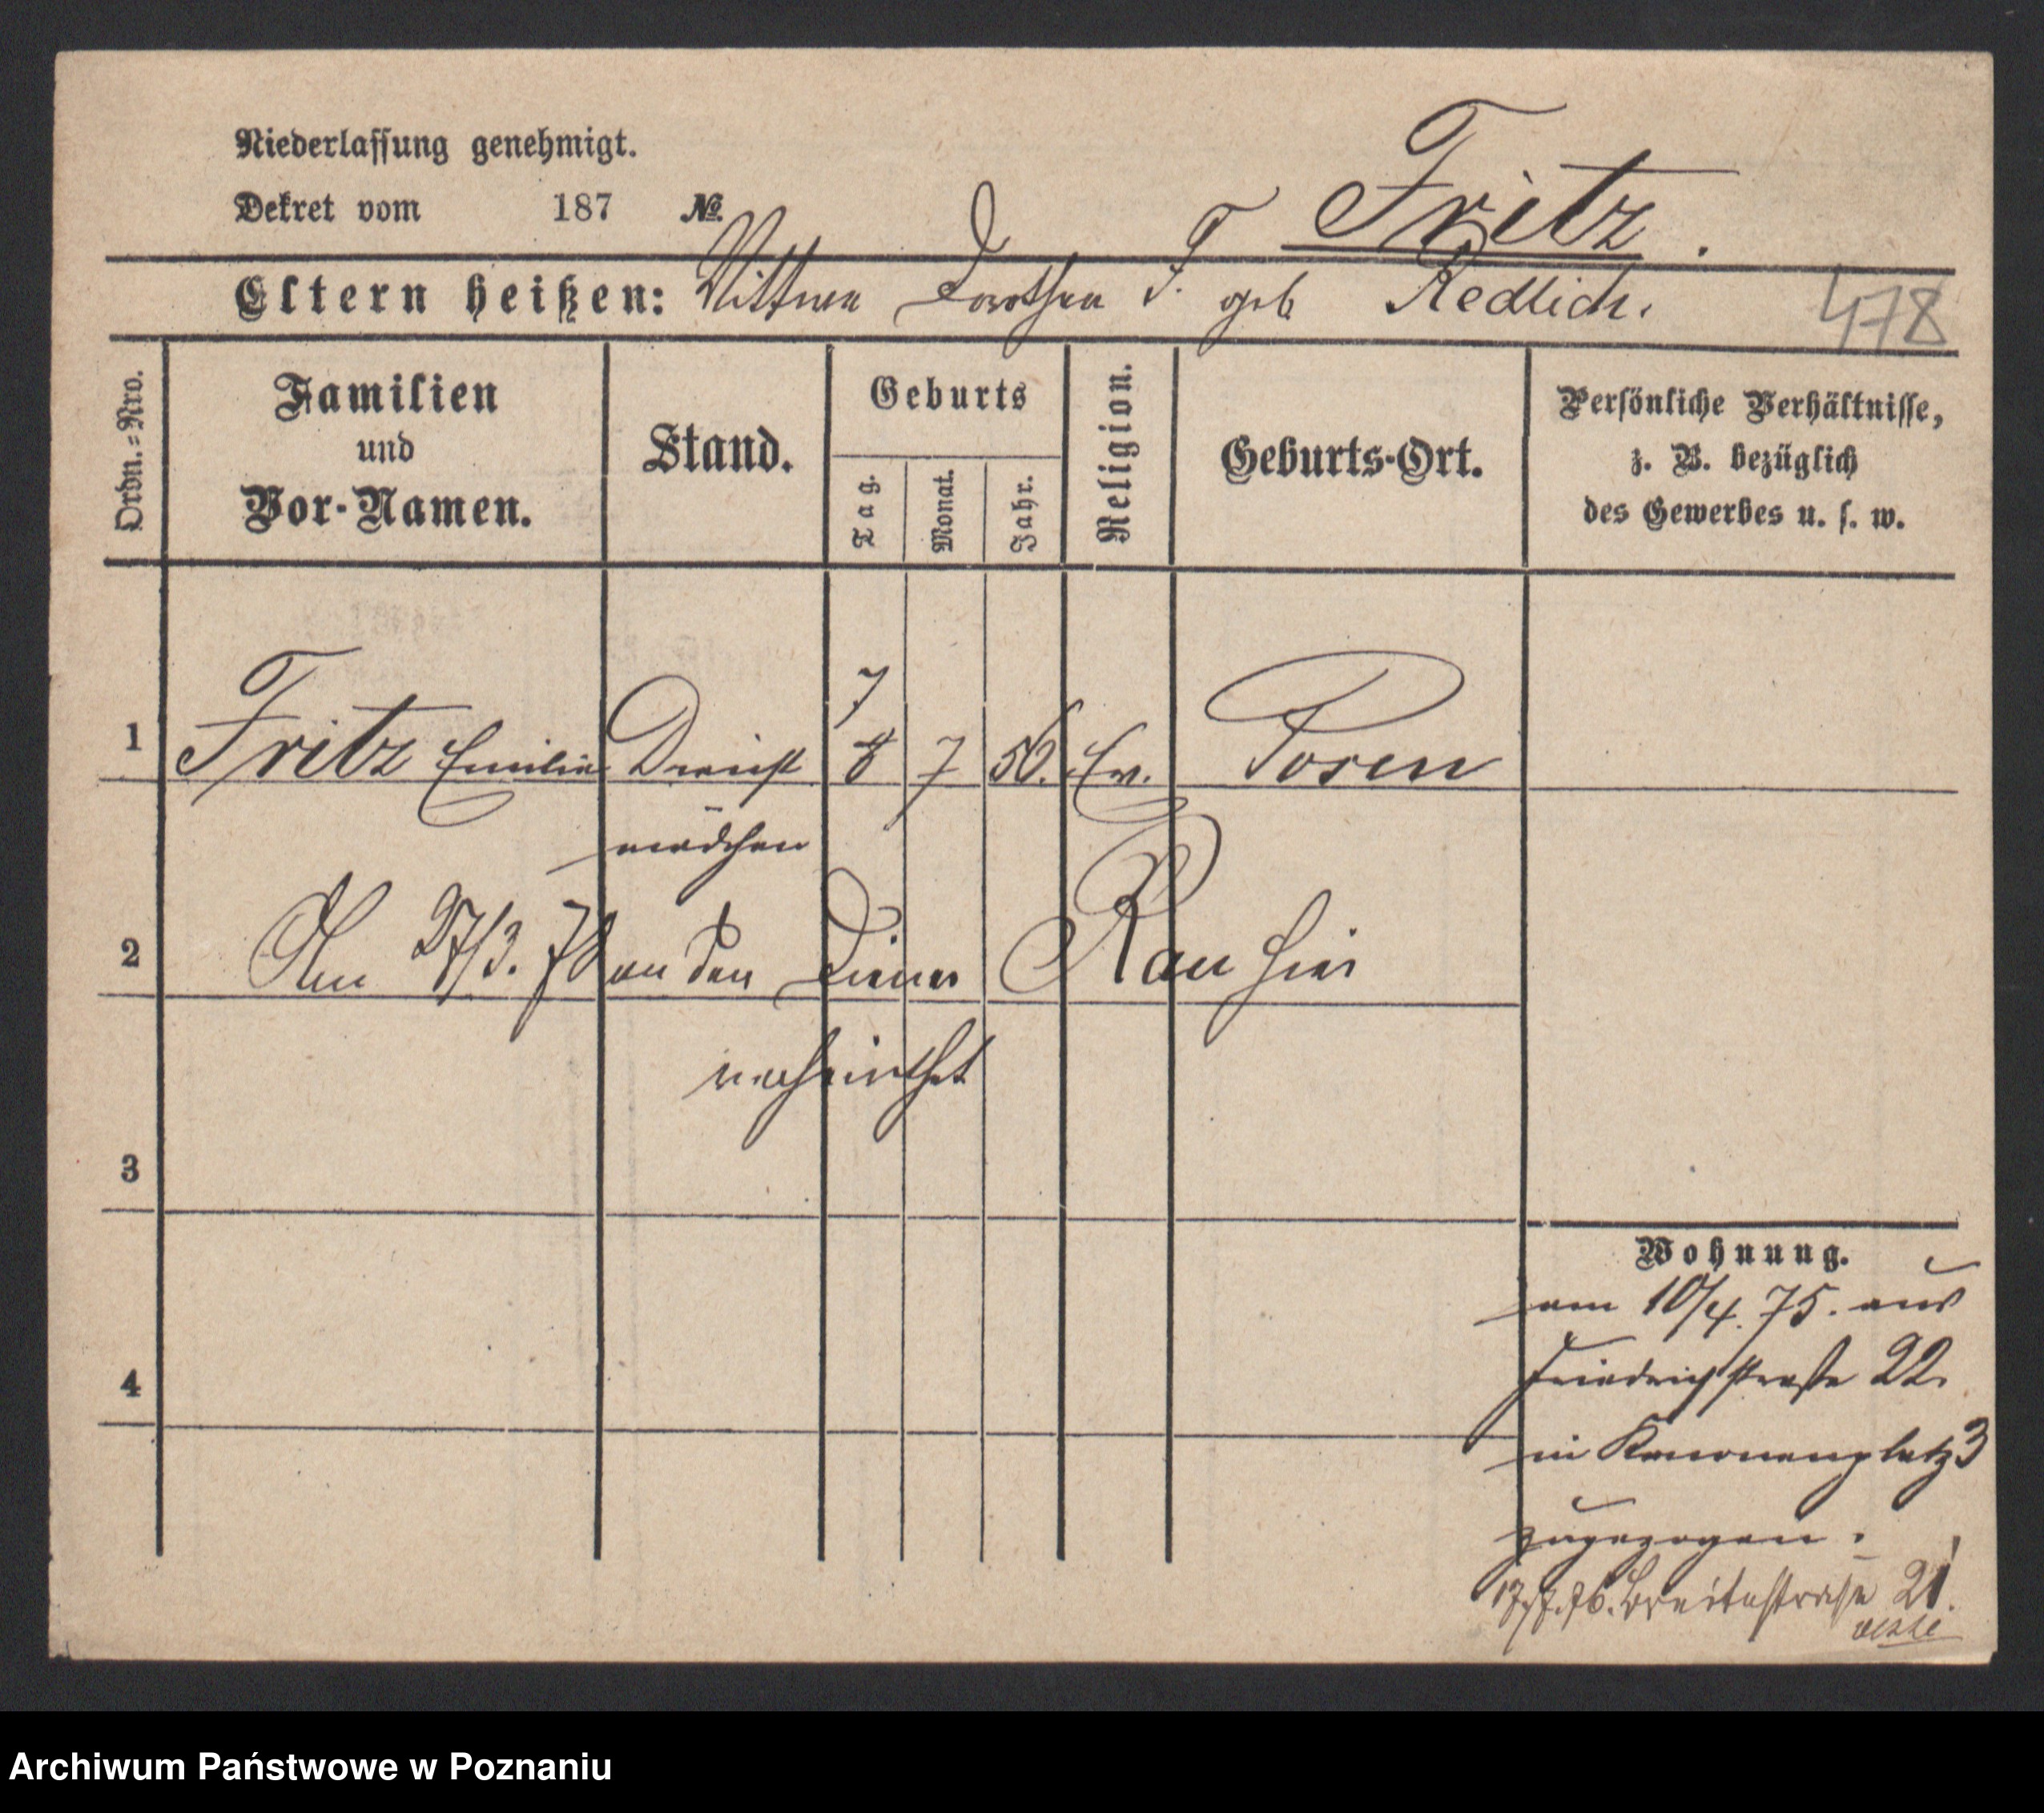 Niederlassung genehmigt.
Dekret vom 187 №
Fritz.
Eltern heißen: Wittwe Dorothea F. geb Redlich.
478
Ordn.=Nro.
Familien und Vor-Namen.
Stand.
Geburts
Tag.
Monat.
Jahr.
Religion.
Geburts-Ort.
Persönliche Verhältnisse,
z. B. bezüglich
des Gewerbes u. s. w.
7
1 Fritz Emilie Dienst 8 7 50. Ev. Posen
mädchen
2 Am 27/3. 78 an den Diener Rau hier
verheirathet
3
4
Wohnung.
am 10/4. 75. aus
Friedrichstraße 22.
in Kanonenplatz 3
zugezogen.
76. Breitestraße 21.
Archiwum Państwowe w Poznaniu